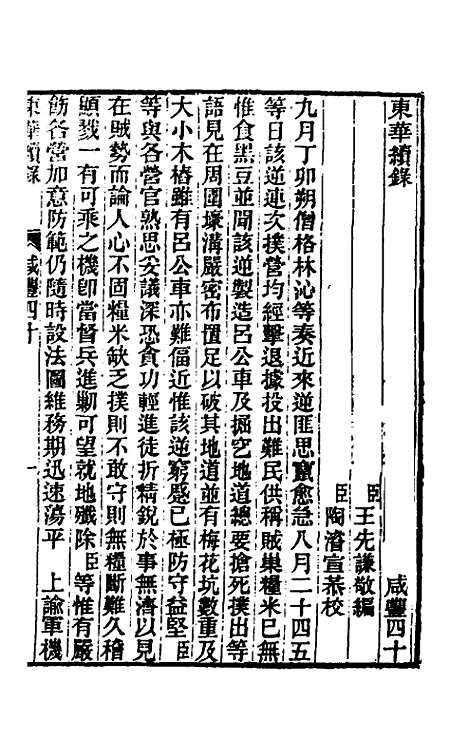 東華續錄 咸豐四十
臣王先謙敬編
臣陶濬宣恭校
九月丁卯朔僧格林沁等奏近來逆匪思竄愈急八月二十四五
等日該逆連次撲營均經擊退據投出難民供稱賊巢糧米已無
惟食黑豆並聞該逆製造呂公車及掘空地道總要搶死撲出等
語見在周圍壕溝嚴密布置足以破其地道並有梅花坑數重及
大小木樁雖有呂公車亦難偪近惟該逆窮蹙已極防守益堅臣
等與各營官熟思妥議深恐貪功輕進徒折精銳於事無濟以見
在賊勢而論人心不固糧米缺乏撲則不敢守則無糧斷難久稽
顯戮一有可乘之機卽當督兵進勦可望就地殲除臣等惟有嚴
飭各營加意防範仍隨時設法圖維務期迅速蕩平 上諭軍機
東華續錄 咸豐四十 一